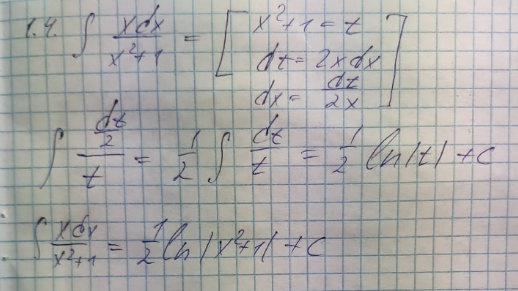 1.4. ∫ xdx/(x²+1) = [ x²+1 = t
dt = 2xdx
dx = dt/2x ]
∫ (dt/2)/t = 1/2 ∫ dt/t = 1/2 ln|t| + c
∫ xdx/(x²+1) = 1/2 ln|x²+1| + c